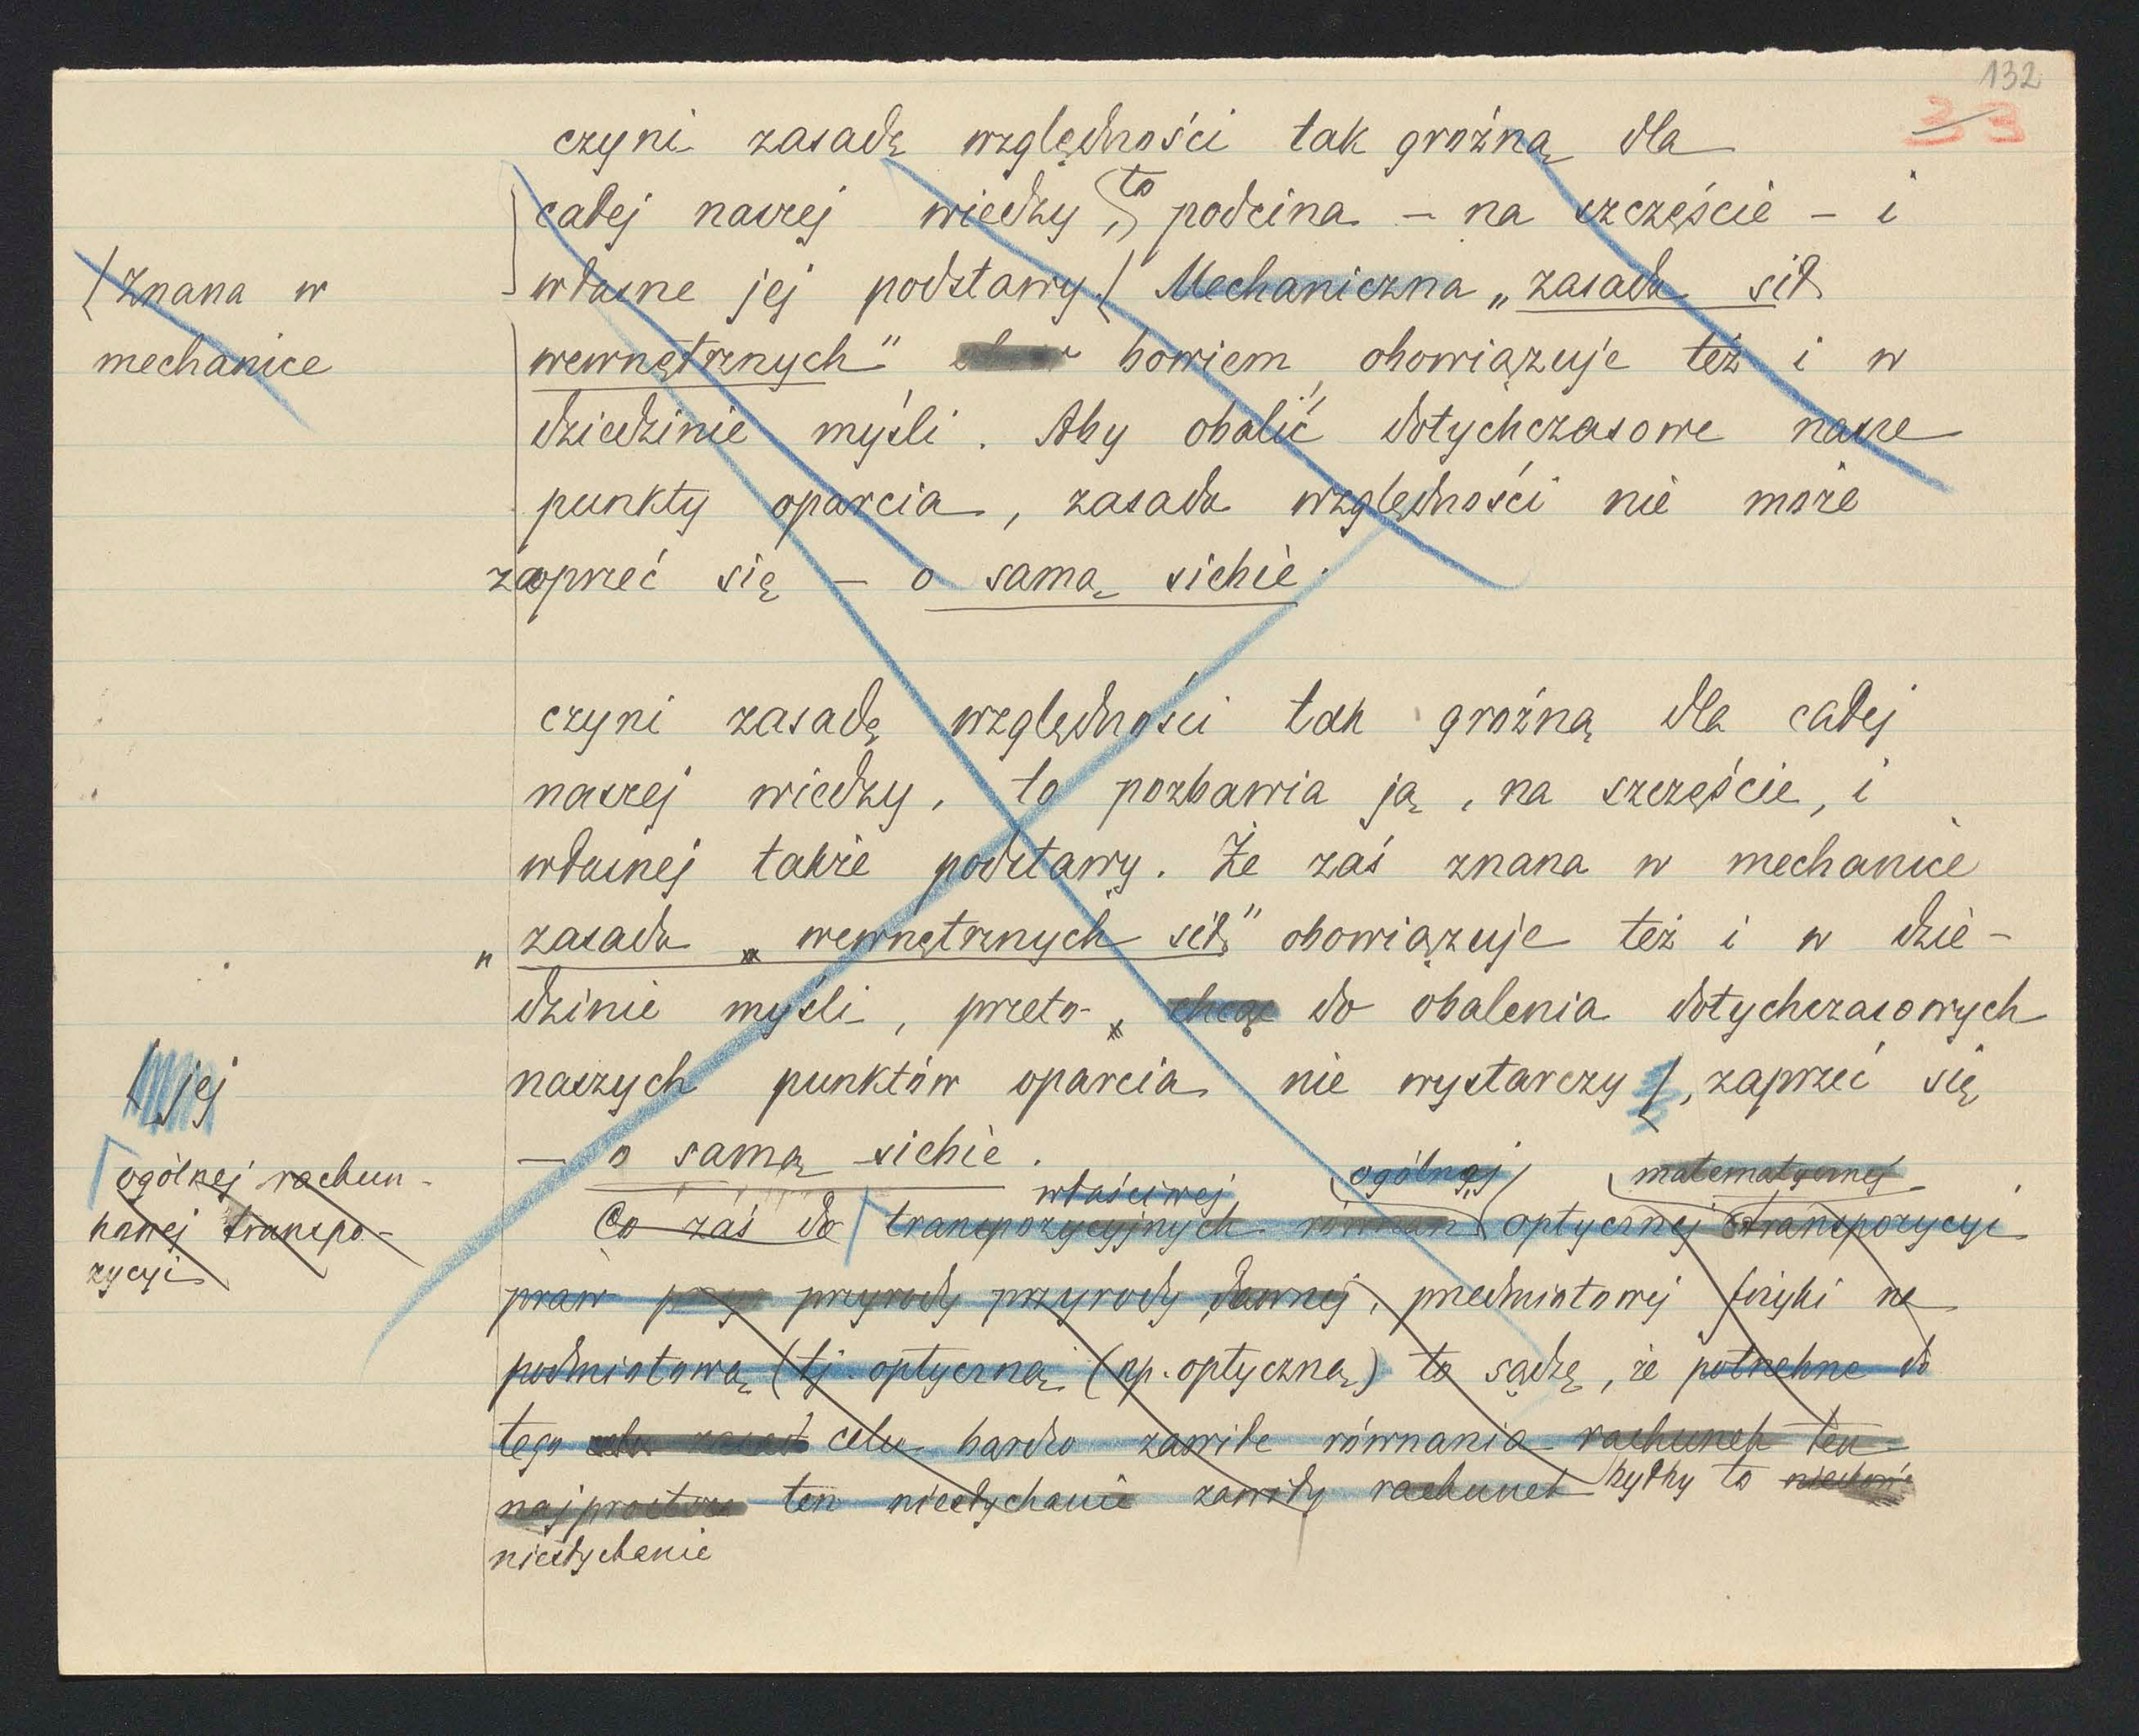 132
33
czyni zasadę względności tak groźną dla
całej naszej wiedzy, to podcina – na szczęście – i
własne jej podstawy. Mechaniczna „zasada sił
wewnętrznych" bowiem obowiązuje też i w
dziedzinie myśli. Aby obalić dotychczasowe nasze
punkty oparcia, zasada względności nie może
zaprzeć się – o samą siebie.
znana w
mechanice
czyni zasadę względności tak groźną dla całej
naszej wiedzy, to pozbawia ją, na szczęście, i
własnej także podstawy. Że zaś znana w mechanice
„zasada wewnętrznych sił" obowiązuje też i w dzie-
dzinie myśli, przeto chcąc do obalenia dotychczasowych
naszych punktów oparcia nie wystarczy, zaprzeć się
– o samą siebie.
jej
ogólnej rachun-
kowej transpo-
zycyi
właściwej ogólnej matematycznej
Co zaś do transpozycyjnych równań optycznej transpozycyi
praw przyrody przyrody dawnej, przedmiotowej fizyki na
podmiotową (tj. optyczną (np. optyczną) to sądzę, że potrzebne do
tego celu bardzo zawiłe równania rachunek ten
najprostsza ten niesłychanie zawiły rachunek byłby to
niesłychanie